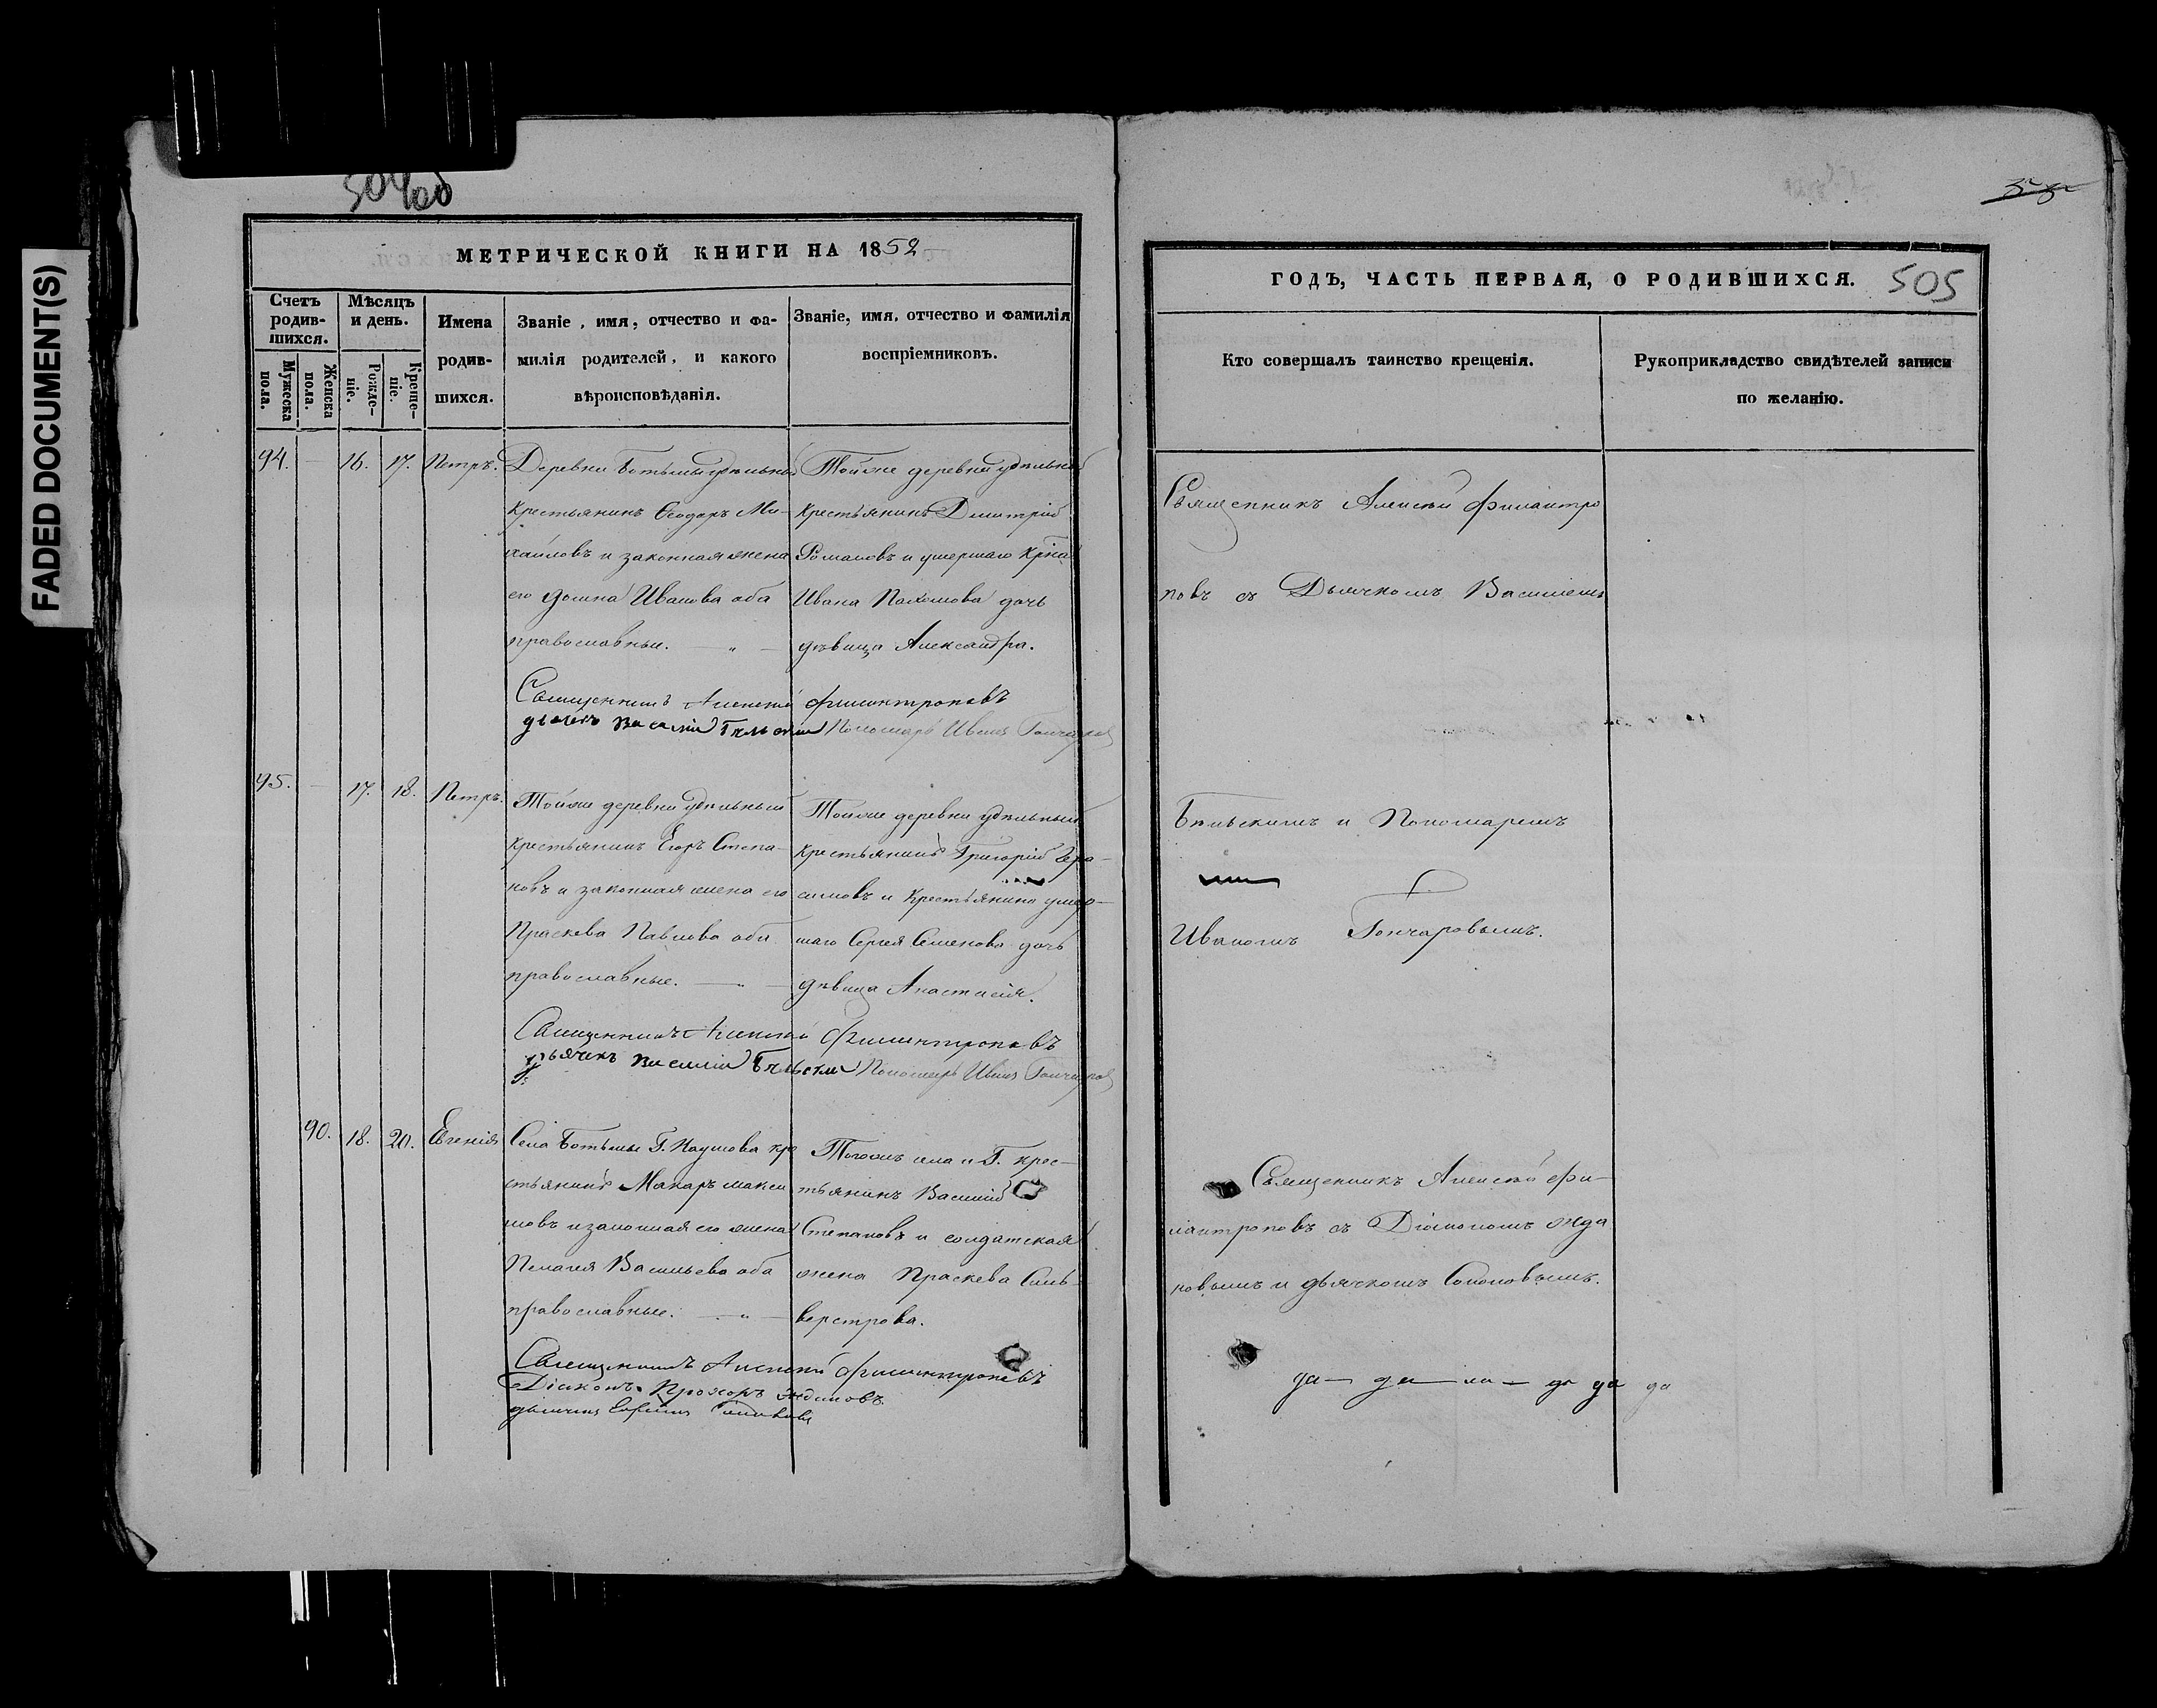 FADED DOCUMENT(S)
504об
МЕТРИЧЕСКОЙ КНИГИ НА 1852
Счетъ родив-шихся.
Мужеска пола.
Женска пола.
Мѣсяцъ и день.
Рожде-ніе.
Креще-ніе.
Имена родив-шихся.
Званіе, имя, отчество и фа-
милія родителей, и какого
вѣроисповѣданія.
Званіе, имя, отчество и фамилія
воспріемниковъ.
94. — 16. 17. Петръ.
Деревни Ботьмы удѣльный
крестьянинъ Ѳеодоръ Ми-
хайловъ и законная жена
его Домна Иванова оба
православные. — „ —
Тойже деревни удѣльный
крестьянинъ Димитрій
Романовъ и умершаго кр-на
Ивана Пахомова дочь
дѣвица Александра.
Священникъ Алексѣй Филантроповъ
дьячекъ Василій Бѣльскій Пономарь Иванъ Гончаровъ
95. — 17. 18. Петръ.
Тойже деревни удѣльный
крестьянинъ Егоръ Степа-
новъ и законная жена его
Праскева Павлова оба
православные. — „ —
Тойже деревни удѣльный
крестьянинъ Григорій Гера-
симовъ и крестьянина умер-
шаго Сергея Семенова дочь
дѣвица Анастасія.
Священникъ Алексѣй Филантроповъ
дьячекъ Василій Бѣльскій Пономарь Иванъ Гончаровъ
90. 18. 20. Евгенія
Села Ботьмы Г. Наумова кре
стьянинъ Макаръ Макси
мовъ и законная его жена
Пелагея Васильева оба
православные. — „ —
Тогожъ села и Г. крес-
тьянинъ Василій
Степановъ и солдатская
жена Праскева Силь-
верстрова.
Священникъ Алексѣй Филантроповъ
Діаконъ Прохоръ Ждановъ
дьячекъ
ГОДЪ, ЧАСТЬ ПЕРВАЯ, О РОДИВШИХСЯ. 505
Кто совершалъ таинство крещенія.
Рукоприкладство свидѣтелей записи
по желанію.
Священникъ Алексѣй Филантро
повъ съ Дьячкомъ Василіемъ
Бѣльскимъ и Пономаремъ
Иваномъ Гончаровымъ.
Священникъ Алексѣй Фи-
лантроповъ съ Діакономъ Жда
новымъ и дьячкомъ Соколовымъ.